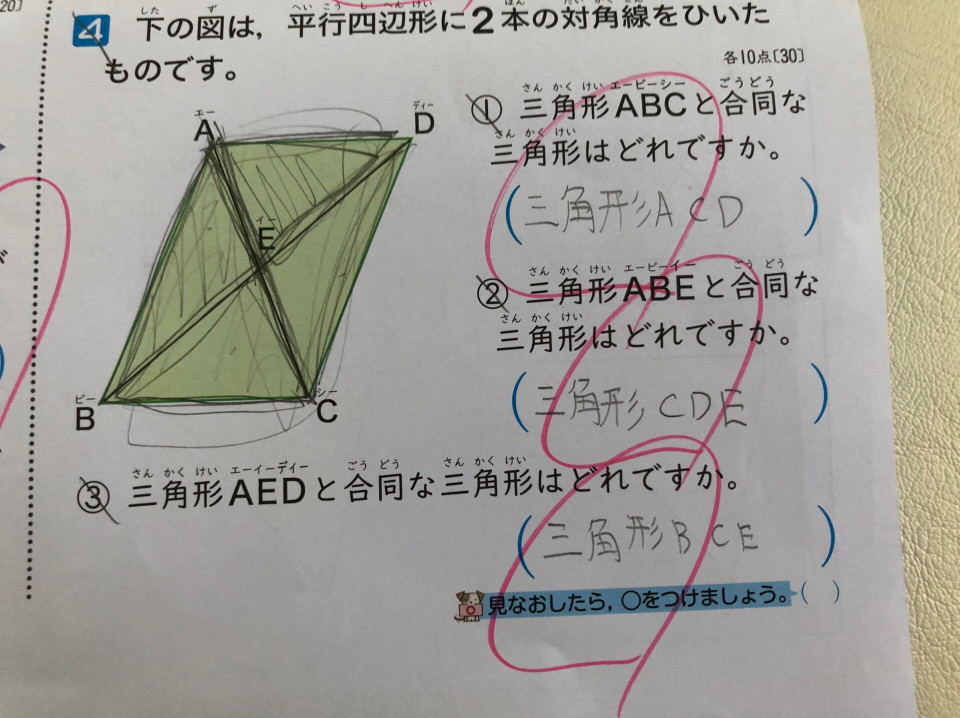 20〕
4 下の図は，平行四辺形に2本の対角線をひいた
ものです。
各10点〔30〕
A
D
E
B
C
① 三角形ABCと合同な
三角形はどれですか。
(三角形ACD)
② 三角形ABEと合同な
三角形はどれですか。
(三角形CDE)
③ 三角形AEDと合同な三角形はどれですか。
(三角形BCE)
見なおしたら，○をつけましょう。( )